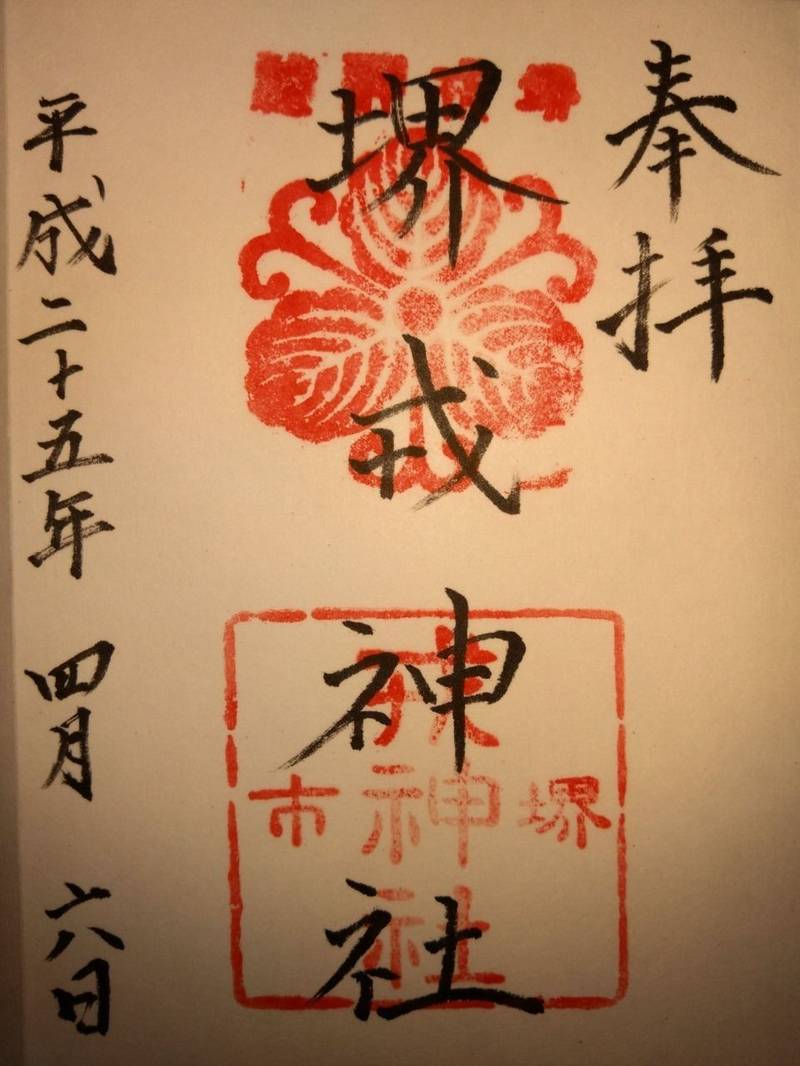 奉拝
堺戎神社
平成二十五年 四月 六日
堺
神社
市